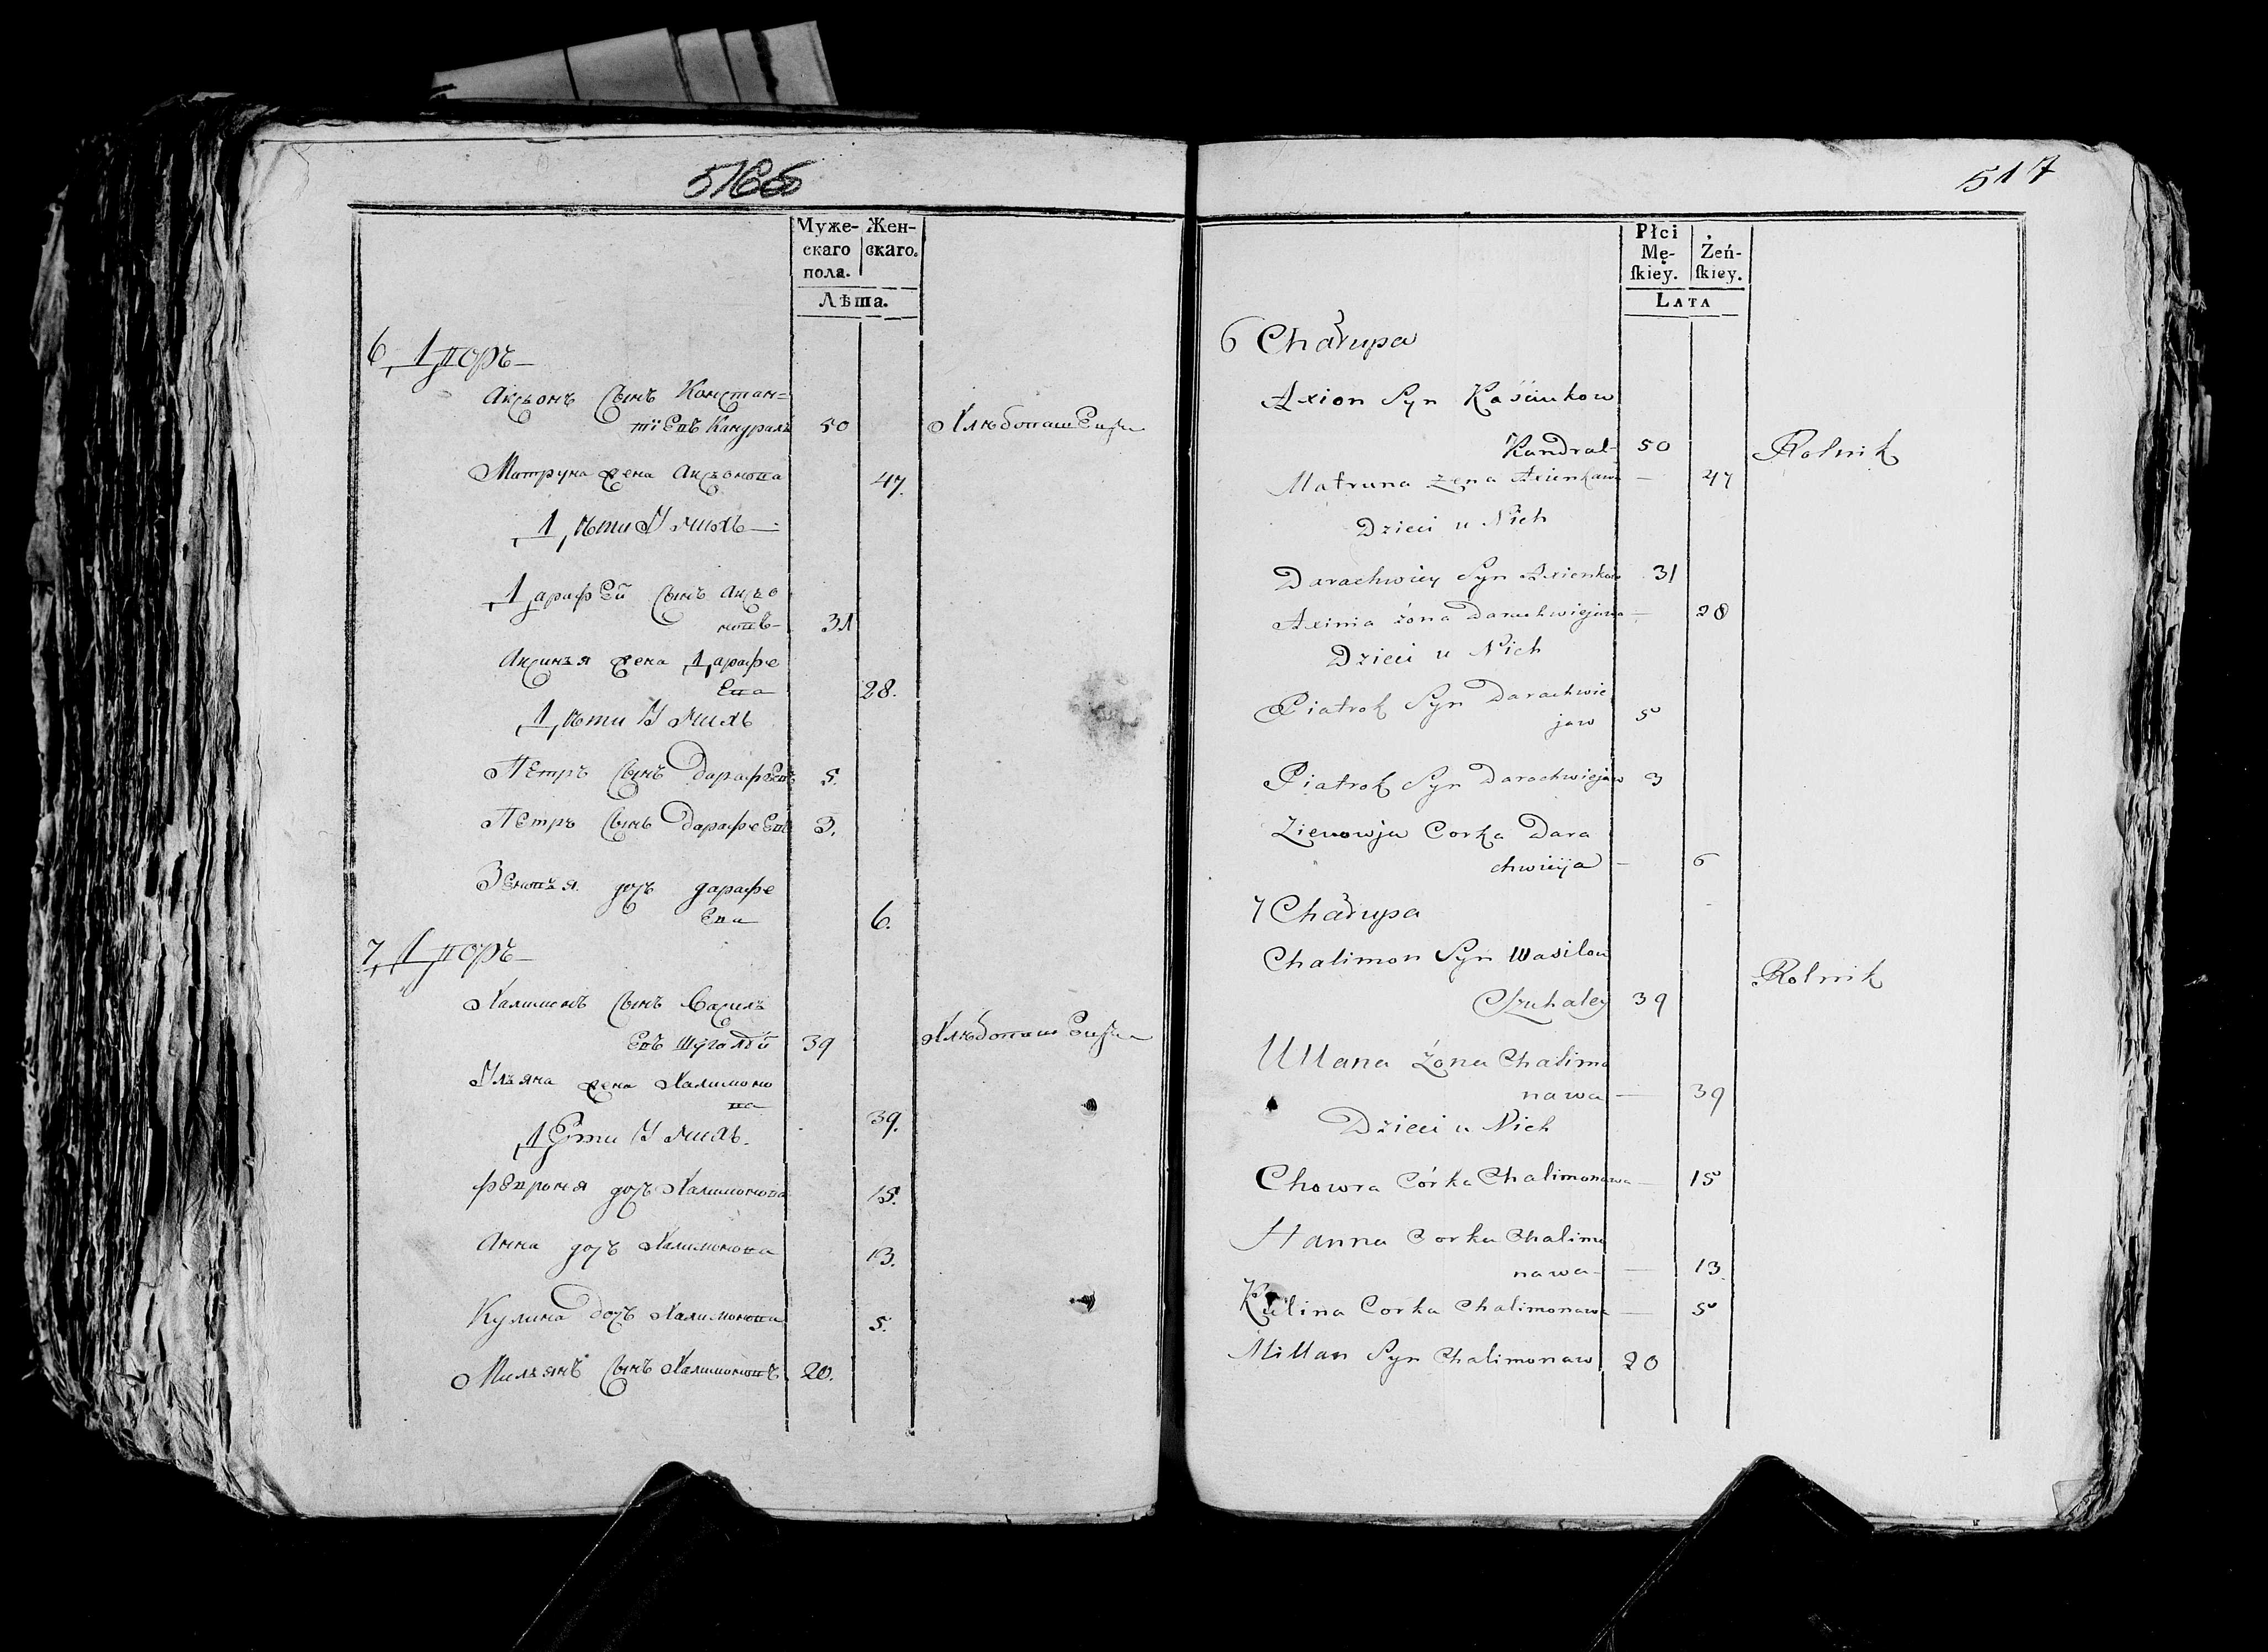 516об
Муже- Жен-
скаго скаго.
пола.
Лѣта.
6 Дворъ
Аксіонъ сынъ Констан=
тіевъ Кандралъ 50 Хлѣбопашецъ
Матруна жена Аксіонова 47.
Дѣти У нихъ
Дарафей сынъ Аксіо
новъ 31
Аксинья жена Дарафе
ева 28.
Дѣти У нихъ
Петръ сынъ Дарафеевъ 5.
Петръ сынъ Дарафеевъ 3.
Зеновья дочь дарафе
ева 6.
7 Дворъ
Халимонъ сынъ Василь
евъ Шугалей 39 Хлѣбопашецъ
Ульяна жена Халимоно
ва 39.
Дети У нихъ.
февроня дочь Халимонова 15.
Анна дочь Халимонова 13.
Кулина дочь Халимонова 5.
Мильянъ сынъ Халимоновъ 20.
517
Płci
Mę- Żeń-
ſkiey. ſkiey.
LATA
6 Chałupa
Axion Syn Kaściukow
Kandral 50 Rolnik
Matruna Żena Axienkawa — 47
Dzieci u Nich
Darachwiey Syn Axienkow 31
Axinia żona Darachwiejawa — 28
Dzieci u Nich
Piatrok Syn Darachwie
jaw 5
Piatrok Syn Darachwiejaw 3
Zienowja Corka Dara
chwieja — 6
7 Chałupa
Chalimon Syn Wasilow
Szuhaley 39 Rolnik
Ullana Żona Chalimo
nawa — 39
Dzieci u Nich
Chowra Córka Chalimonawa — 15
Hanna Corka Chalimo
nawa — 13
Kulina Corka Chalimonawa — 5
Millan Syn Chalimonaw 20